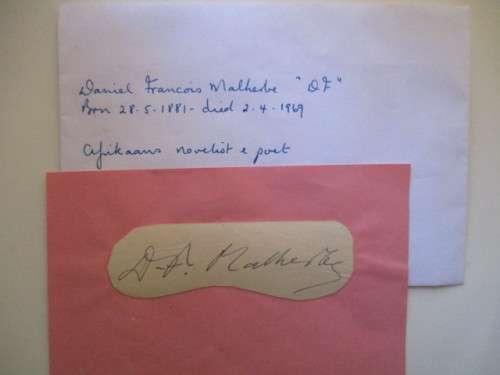 Daniel Francois Malherbe "DF"
Born 28.5.1881 - died 2.4.1969
Afrikaans novelist & poet
D.F. Malherbe